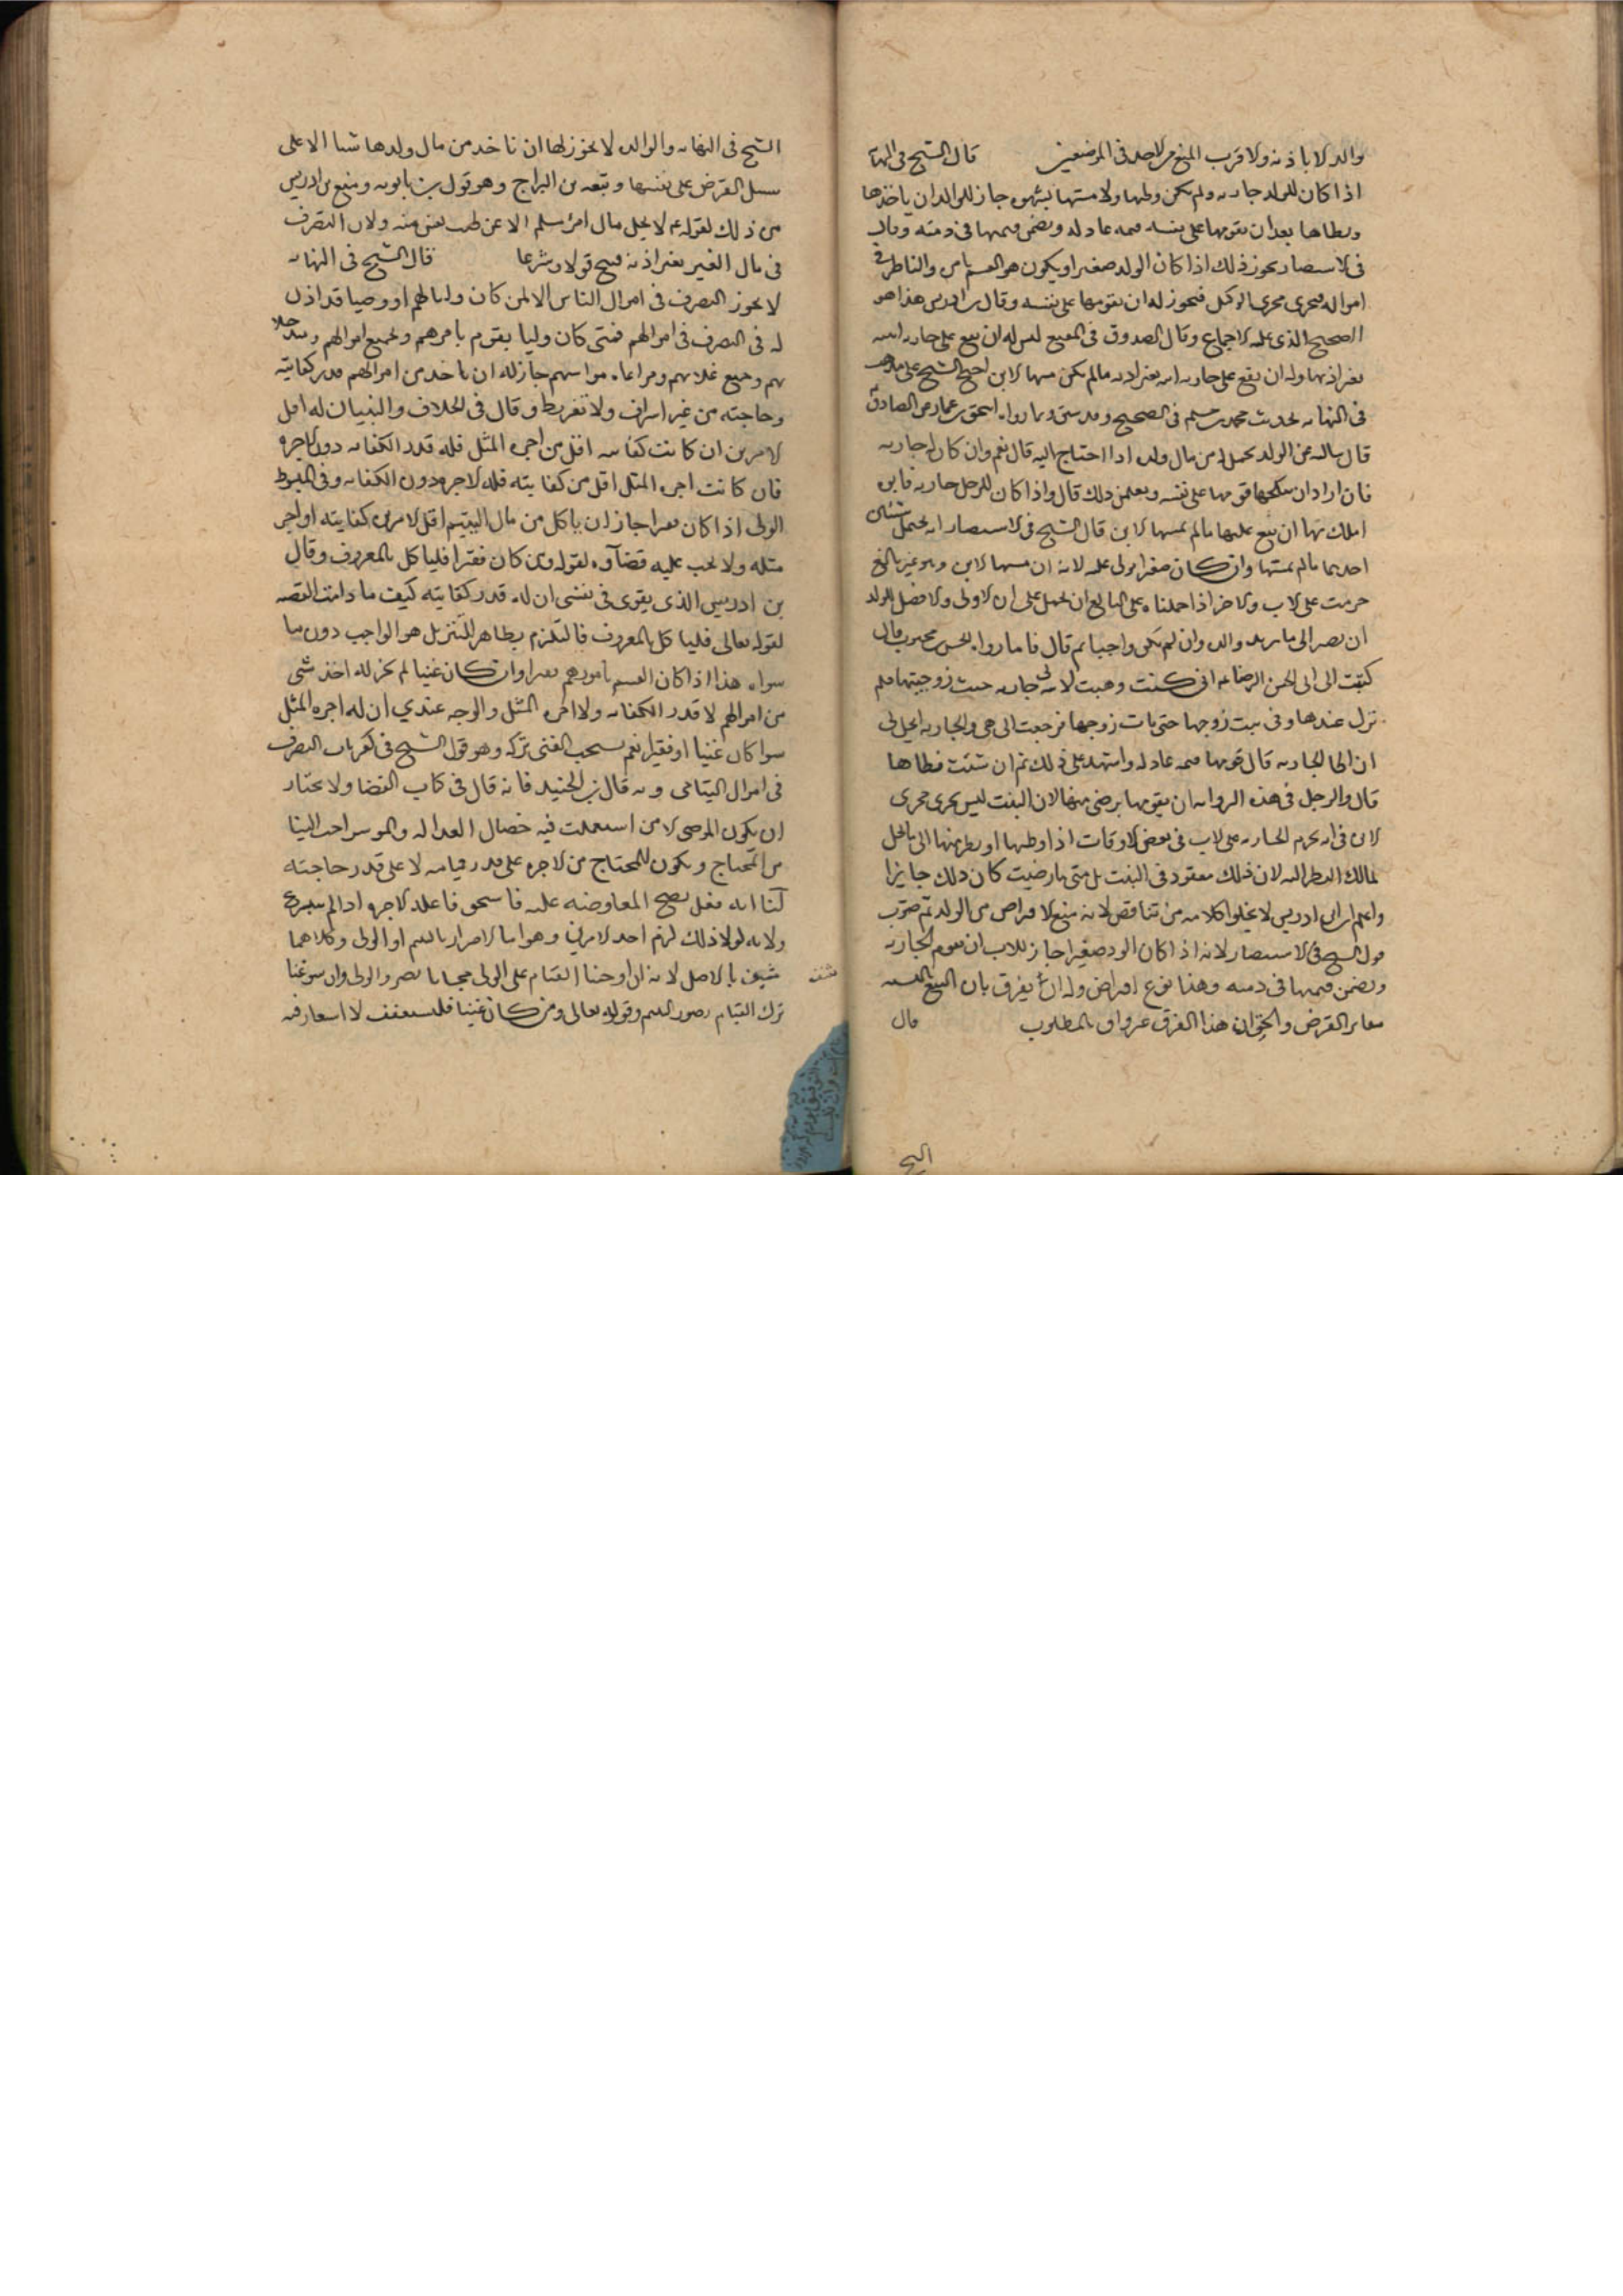 والده الا باذنه والاقرب المنع من الاخذ في الموضعين قال الشيخ في النهاية
اذا كان للولد جارية ولم يكن وطيها ولا مسها بشهوة جاز للوالد ان ياخذها
ويطاها بعد ان يقومها على نفسه قيمة عادلة ويضمن قيمتها في ذمته وقال
في الاستبصار يجوز ذلك اذا كان الولد صغيرا ويكون هو القيم بامره والناظر في
امواله فيجري مجرى الوكيل فيجوز له ان يقومها على نفسه وقال بن ادريس هذا هو
الصحيح الذي عليه الاجماع وقال الصدوق في المقنع ليس له ان يقع على جارية ابنته
بغير اذنها وله ان يقع على جارية ابنه بغير اذنه ما لم يكن مسها الابن احتج الشيخ على مذهبه
في النهاية بحديث محمد بن مسلم في الصحيح وقد سبق وبما رواه اسحق بن عمار عن الصادق
قال سالته عن الوالد يحل له من مال ولده اذا احتاج اليه قال نعم وان كان له جارية
فان اراد ان ينكحها قومها على نفسه ويعلن ذلك قال واذا كان للرجل جارية فابوه
املك بها ان يقع عليها ما لم يمسها الابن قال الشيخ في الاستبصار انه يحتمل شيئين
احدهما ما لم يمسها وان كان صغيرا يولى عليه لانه ان مسها الابن وهو غير بالغ
حرمت على الاب والاخر اذا حملناه على البالغ ان يحمل على ان الاولى والافضل للولد
ان يصير الى ما يريده والده وان لم يكن واجبا ثم قال فاما ما رواه الحسن بن محبوب قال
كتبت الى ابي الحسن الرضا ع اني كنت وهبت لابنتي جارية حيث زوجتها فلم
تزل عندها وفي بيت زوجها حتى مات زوجها فرجعت الي هي والجارية ايحل لي
ان اطا الجارية قال قومها قيمة عادلة واشهد على ذلك ثم ان شئت فطاها
قال والرجل في هذه الرواية ان يقومها برضى منها لان البنت ليس يجري مجرى
الابن في انه يحرم الجارية على الاب في بعض الاوقات اذا وطيها او نظر منها الى ما يحل
لمالك النظر اليه لان ذلك مفقود في البنت بل متى ما رضيت كان ذلك جايزا
واعلم ان بن ادريس لا يخلوا كلامه من تناقض لانه منع الاقراض من الولد ثم صوب
قول الشيخ في الاستبصار لانه اذا كان الولد صغيرا جاز للاب ان يقوم الجارية
ويضمن قيمتها في ذمته وهذا نوع اقراض وله ان يفرق بان البيع بالقيمة
مغاير القرض والحق ان هذا الفرق غير واف بالمطلوب قال
الشيخ
الشيخ في النهاية والوالدة لا يجوز لها ان تاخذ من مال ولدها شيا الا على
سبيل القرض على نفسها وتبعه بن البراج وهو قول بن بابويه ومنع بن ادريس
من ذلك لقوله ع لا يحل مال امرئ مسلم الا عن طيب نفس منه ولان التصرف
في مال الغير بغير اذنه قبيح عقلا وشرعا قال الشيخ في النهاية
لا يجوز التصرف في اموال الناس الا لمن كان وليا لهم او وصيا قد اذن
له في التصرف في اموالهم فمتى كان وليا يقوم بامرهم وبجمع اموالهم وسد خلا
تهم وجمع غلاتهم ومراعاة مواشيهم جاز له ان ياخذ من اموالهم قدر كفايته
وحاجته من غير اسراف ولا تفريط وقال في الخلاف والتبيان له اقل
الامرين ان كانت كفايته اقل من اجرة المثل فله قدر الكفاية دون الاجرة
فان كانت اجرة المثل اقل من كفايته فله الاجرة دون الكفاية وفي المبسوط
الولي اذا كان فقيرا جاز ان ياكل من مال اليتيم اقل الامرين كفايته او اجرة
مثله ولا يجب عليه قضاوه لقوله ومن كان فقيرا فلياكل بالمعروف وقال
بن ادريس الذي يقوى في نفسي ان له قدر كفايته كيف ما دارت القصة
لقوله تعالى فلياكل بالمعروف فالتلزم بظاهر التنزيل هو الواجب دون ما
سواه هذا اذا كان القيم بامورهم فقيرا وان كان غنيا لم يجز له اخذ شي
من اموالهم لا قدر الكفاية ولا اجرة المثل والوجه عندي ان له اجرة المثل
سوا كان غنيا او فقيرا نعم يستحب للغني تركه وهو قول الشيخ في اخر باب التصرف
في اموال اليتامى وبه قال بن الجنيد فانه قال في كتاب القضا ولا يختار
ان يكون الموصى الا من استعملت فيه خصال العدالة والموسر احب الينا
من المحتاج ويكون للمحتاج من الاجرة على قدر قيامه لا على قدر حاجته
لنا انه فعل يصح المعاوضة عليه فاستحق فاعله الاجرة اذا لم يتبرع
ولانه لولا ذلك لزم احد الامرين وهو اما الاضرار باليتيم او الولي وكلاهما
منفي بالاصل لانه ان اوجبنا القيام على الولي مجانا تضرر الولي وان سوغنا
ترك القيام تضرر اليتيم وقوله تعالى ومن كان غنيا فليستعفف لاشعار فيه